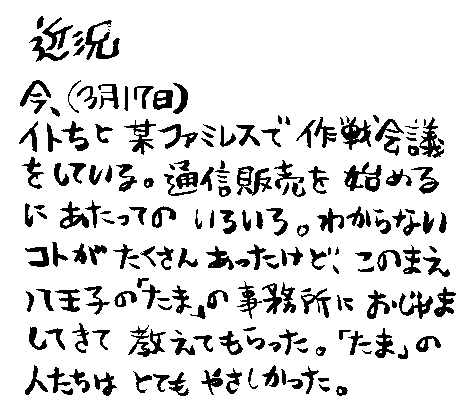 近況
今、(3月17日)
イトちと某ファミレスで作戦会議
をしている。通信販売を始める
にあたってのいろいろ。わからない
コトがたくさんあったけど、このまえ
八王子の「たま」の事務所におじゃま
してきて教えてもらった。「たま」の
人たちはとてもやさしかった。